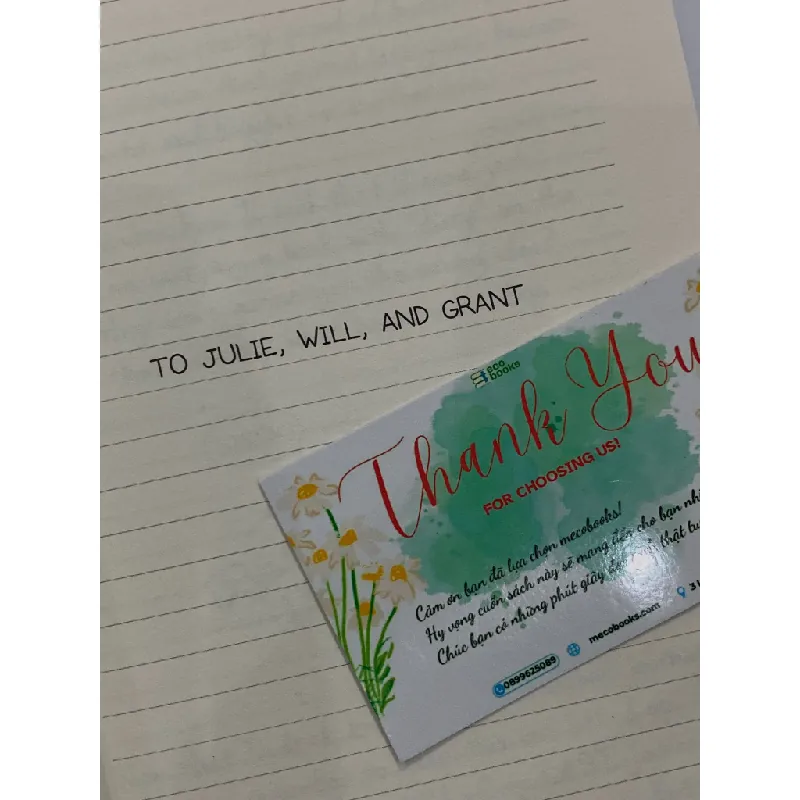 TO JULIE, WILL, AND GRANT
eco
books
Thank You
FOR CHOOSING US!
Cảm ơn bạn đã lựa chọn mecobooks!
Hy vọng cuốn sách này sẽ mang đến cho bạn
Chúc bạn có những phút giây thật
0899625089
mecobooks.com
3